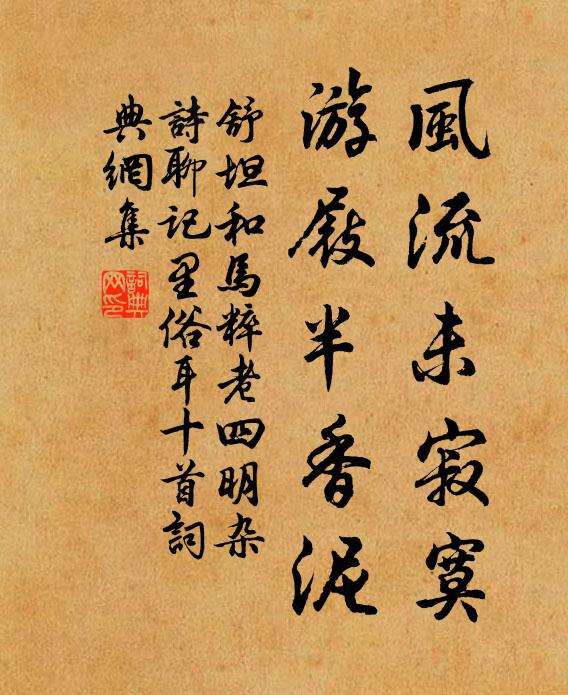 風流未寂寞
游屐半香泥
舒坦和馬粹老四明杂
詩聊記里俗耳十首詞
典網集
詞典
网印